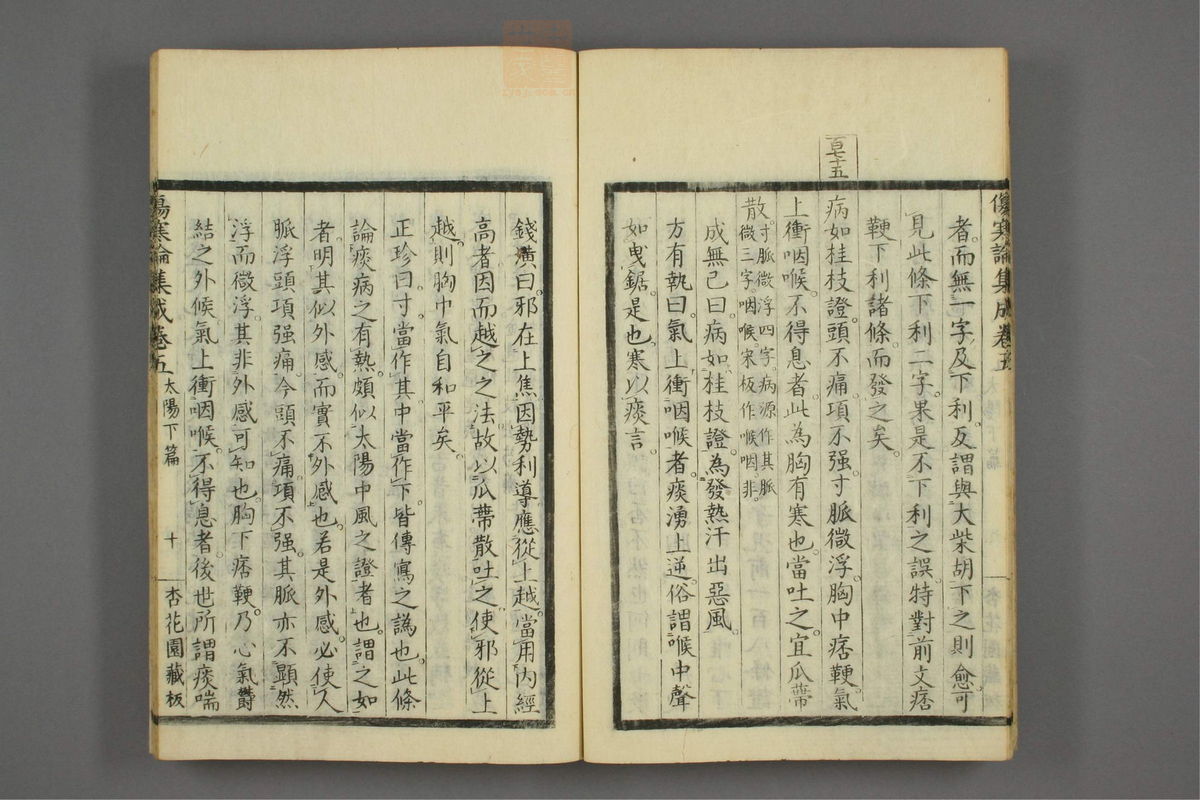 傷寒論集成卷五
者而無一字及下利反謂與大柴胡下之則愈可
見此條下利二字果是不下利之誤特對前文痞
鞕下利諸條而發之矣
百七十五
病如桂枝證頭不痛項不强寸脈微浮胸中痞鞕氣
上衝咽喉不得息者此為胸有寒也當吐之宜瓜蔕
散寸脈微浮四字病源作其脈
微三字咽喉宋板作喉咽非
成無己曰病如桂枝證為發熱汗出惡風
方有執曰氣上衝咽喉者痰湧上逆俗謂喉中聲
如曳鋸是也寒以痰言
錢潢曰邪在上焦因勢利導應從上越當用內經
高者因而越之之法故以瓜蔕散吐之使邪從上
越則胸中氣自和平矣
正珍曰寸當作其中當作下皆傳寫之譌也此條
論痰病之有熱頗似太陽中風之證者也謂之如
者明其似外感而實不外感也若是外感必使人
脈浮頭項强痛今頭不痛項不强其脈亦不顯然
浮而微浮其非外感可知也胸下痞鞕乃心氣鬱
結之外候氣上衝咽喉不得息者後世所謂痰喘
傷寒論集成卷五 太陽下篇 十 杏花園藏板